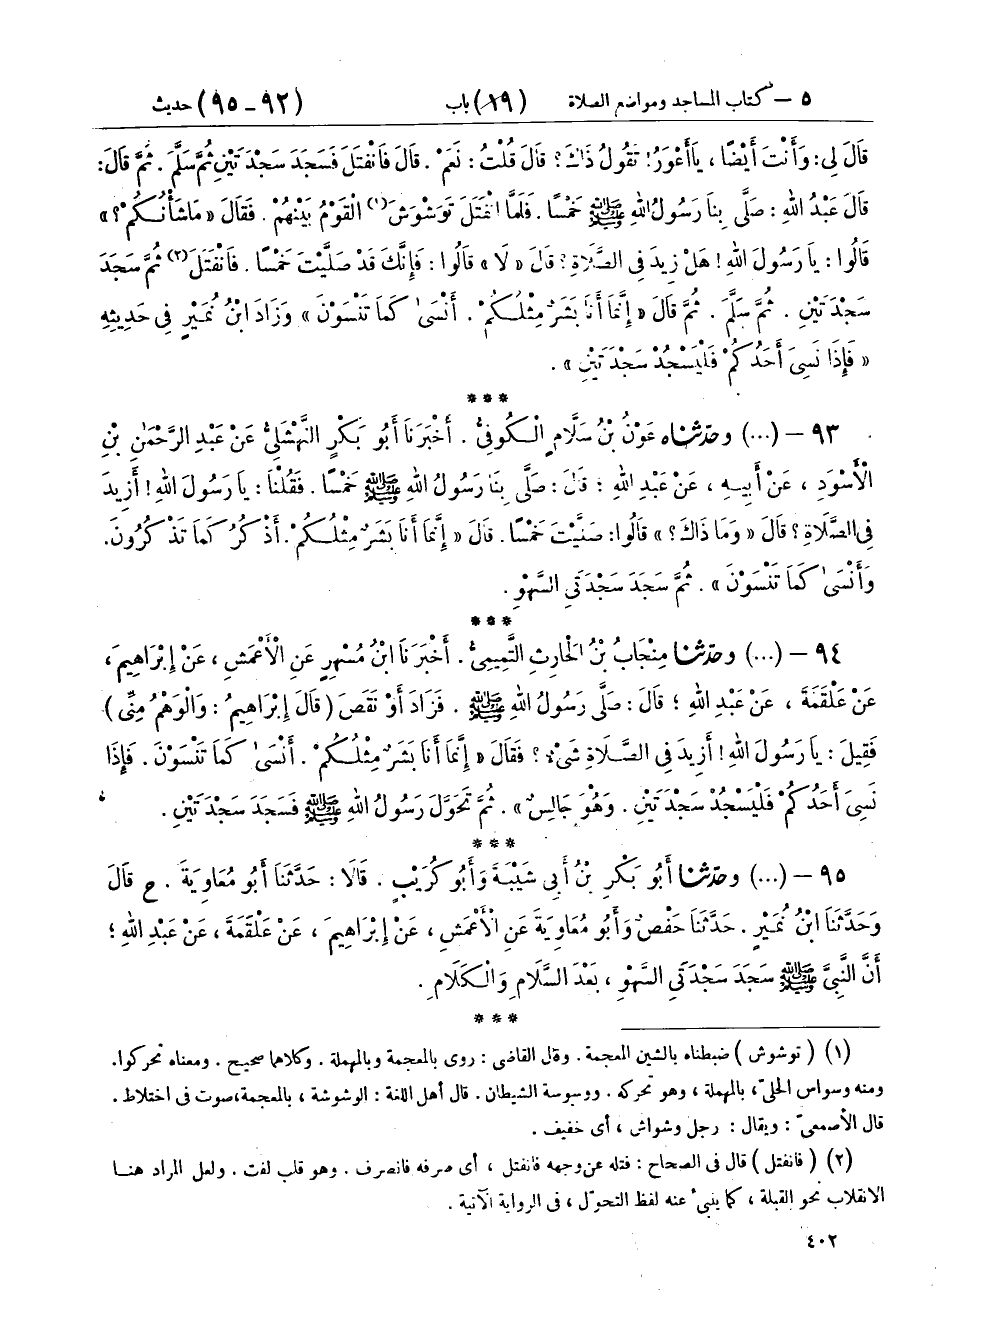 ٥ – كتاب المساجد ومواضع الصلاة (١٩) باب (٩٢-٩٥) حديث
قَالَ لِي: وَأَنْتَ أَيْضًا ، يَا أَعْوَرُ! تَقُولُ ذَاكَ؟ قَالَ قُلْتُ: نَعَمْ . قَالَ فَانْفَتَلَ فَسَجَدَ سَجْدَتَيْنِ ثُمَّ سَلَّمَ . ثُمَّ قَالَ:
قَالَ عَبْدُ اللهِ : صَلَّى بِنَا رَسُولُ اللهِ ﷺ خَمْسًا . فَلَمَّا انْفَتَلَ تَوَشْوَشَ(١) الْقَوْمُ بَيْنَهُمْ . فَقَالَ « مَا شَأْنُكُمْ ؟ »
قَالُوا : يَا رَسُولَ اللهِ ! هَلْ زِيدَ فِي الصَّلَاةِ ؟ قَالَ « لَا » قَالُوا : فَإِنَّكَ قَدْ صَلَّيْتَ خَمْسًا . فَانْفَتَلَ(٢) ثُمَّ سَجَدَ
سَجْدَتَيْنِ . ثُمَّ سَلَّمَ . ثُمَّ قَالَ « إِنَّمَا أَنَا بَشَرٌ مِثْلُكُمْ . أَنْسَىٰ كَمَا تَنْسَوْنَ » وَزَادَ ابْنُ نُمَيْرٍ فِي حَدِيثِهِ
« فَإِذَا نَسِيَ أَحَدُكُمْ فَلْيَسْجُدْ سَجْدَتَيْنِ » .
***
٩٣ – (...) وحدّثناه عَوْنُ بْنُ سَلَّامٍ الْكُوفِيُّ . أَخْبَرَنَا أَبُو بَكْرٍ النَّهْشَلِيُّ عَنْ عَبْدِ الرَّحْمَٰنِ بْنِ
الْأَسْوَدِ ، عَنْ أَبِيهِ ، عَنْ عَبْدِ اللهِ ؛ قَالَ : صَلَّى بِنَا رَسُولُ اللهِ ﷺ خَمْسًا . فَقُلْنَا : يَا رَسُولَ اللهِ ! أَزِيدَ
فِي الصَّلَاةِ ؟ قَالَ « وَمَا ذَاكَ ؟ » قَالُوا: صَلَّيْتَ خَمْسًا . قَالَ « إِنَّمَا أَنَا بَشَرٌ مِثْلُكُمْ . أَذْكُرُ كَمَا تَذْكُرُونَ.
وَأَنْسَىٰ كَمَا تَنْسَوْنَ » . ثُمَّ سَجَدَ سَجْدَتَيِ السَّهْوِ .
***
٩٤ – (...) وحدّثنا مِنْجَابُ بْنُ الْحَارِثِ التَّمِيمِيُّ . أَخْبَرَنَا ابْنُ مُسْهِرٍ عَنِ الْأَعْمَشِ ، عَنْ إِبْرَاهِيمَ ،
عَنْ عَلْقَمَةَ ، عَنْ عَبْدِ اللهِ ؛ قَالَ : صَلَّى رَسُولُ اللهِ ﷺ . فَزَادَ أَوْ نَقَصَ ( قَالَ إِبْرَاهِيمُ : وَالْوَهْمُ مِنِّي )
فَقِيلَ : يَا رَسُولَ اللهِ ! أَزِيدَ فِي الصَّلَاةِ شَيْءٌ ؟ فَقَالَ « إِنَّمَا أَنَا بَشَرٌ مِثْلُكُمْ . أَنْسَىٰ كَمَا تَنْسَوْنَ . فَإِذَا
نَسِيَ أَحَدُكُمْ فَلْيَسْجُدْ سَجْدَتَيْنِ . وَهُوَ جَالِسٌ » . ثُمَّ تَحَوَّلَ رَسُولُ اللهِ ﷺ فَسَجَدَ سَجْدَتَيْنِ .
***
٩٥ – (...) وحدّثنا أَبُو بَكْرِ بْنُ أَبِي شَيْبَةَ وَأَبُو كُرَيْبٍ . قَالَا : حَدَّثَنَا أَبُو مُعَاوِيَةَ . ح قَالَ
وَحَدَّثَنَا ابْنُ نُمَيْرٍ . حَدَّثَنَا حَفْصٌ وَأَبُو مُعَاوِيَةَ عَنِ الْأَعْمَشِ ، عَنْ إِبْرَاهِيمَ ، عَنْ عَلْقَمَةَ ، عَنْ عَبْدِ اللهِ ؛
أَنَّ النَّبِيَّ ﷺ سَجَدَ سَجْدَتَيِ السَّهْوِ ، بَعْدَ السَّلَامِ وَالْكَلَامِ .
***
(١) ( توشوش ) ضبطناه بالشين المعجمة . وقال القاضي : روى بالمعجمة وبالمهملة . وكلاهما صحيح . ومعناه تحركوا.
ومنه وسواس الحلىّ ، بالمهملة ، وهو تحركه . ووسوسة الشيطان . قال أهل اللغة : الوشوشة ، بالمعجمة، صوت فى اختلاط .
قال الأصمعىّ : ويقال : رجل وشواش ، أى خفيف .
(٢) ( فانفتل ) قال فى الصحاح : فتله عن وجهه فانفتل ، أى صرفه فانصرف . وهو قلب لفت . ولعل المراد هنا
الانقلاب نحو القبلة ، كما ينبئ عنه لفظ التحوّل ، فى الرواية الآتية .
٤٠٢